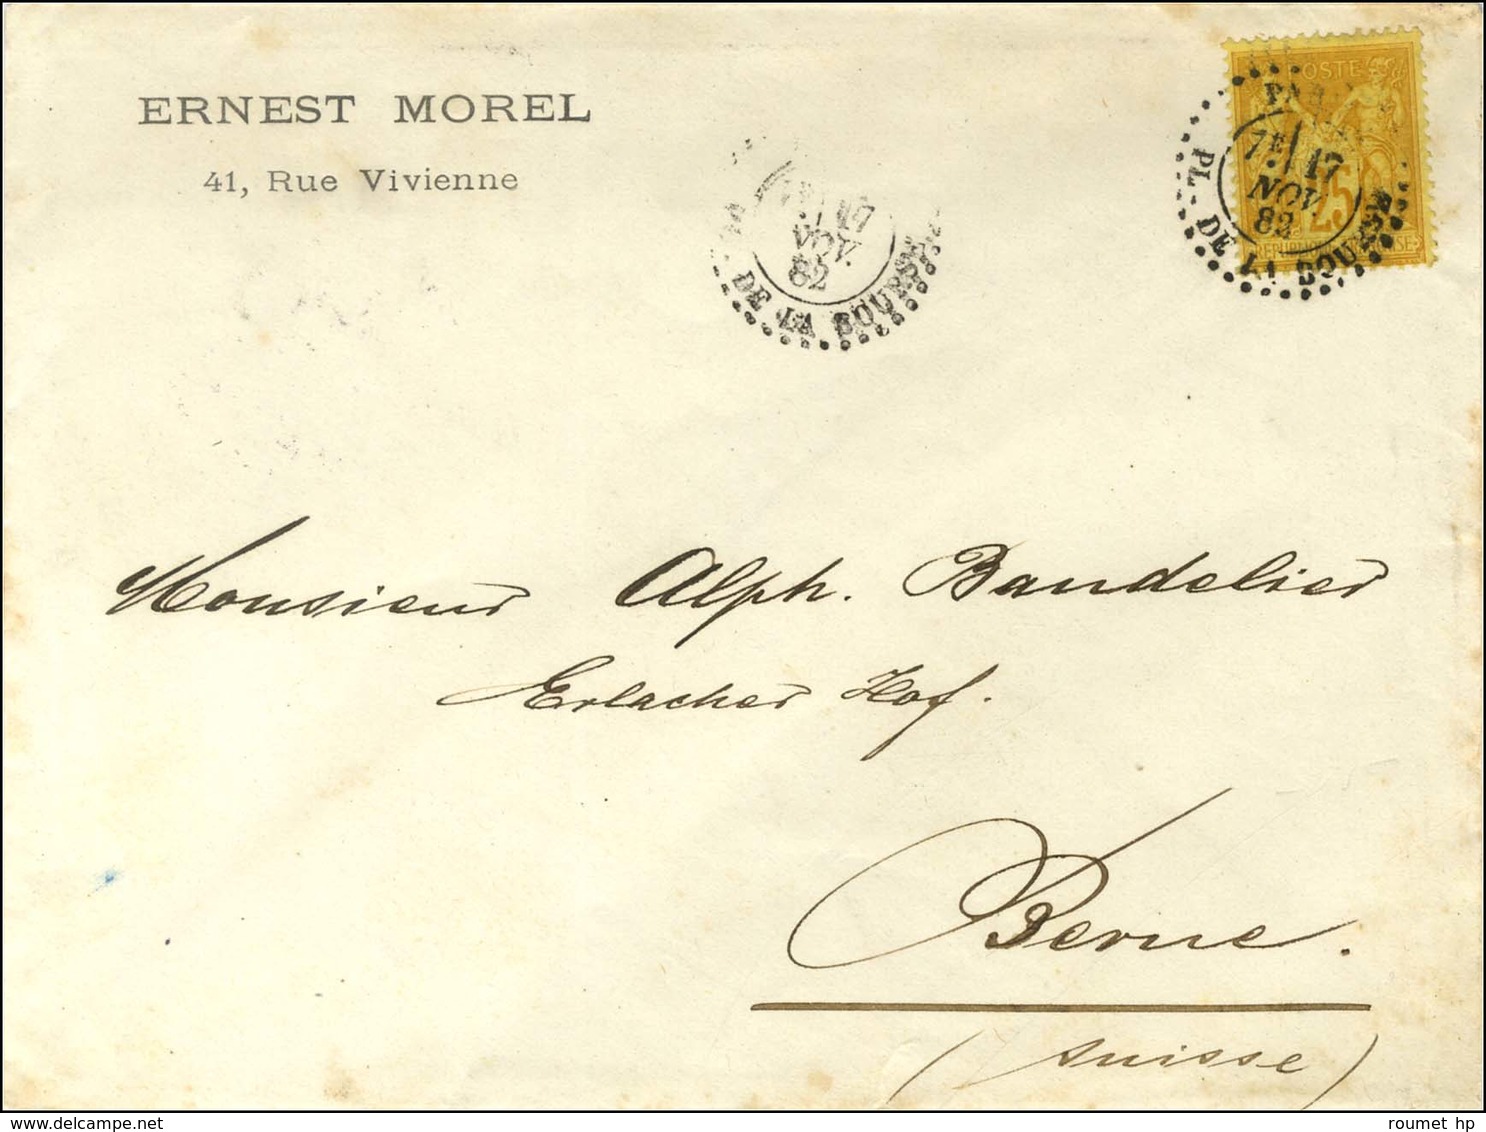 ERNEST MOREL
41, Rue Vivienne
POSTE
25
PARIS
7E 17
NOV.
82
PL. DE LA BOURSE
17
NOV.
82
DE LA BOURSE
Monsieur Alph. Bandelier
Erlacher Hof.
Berne.
(Suisse)
roumet hp